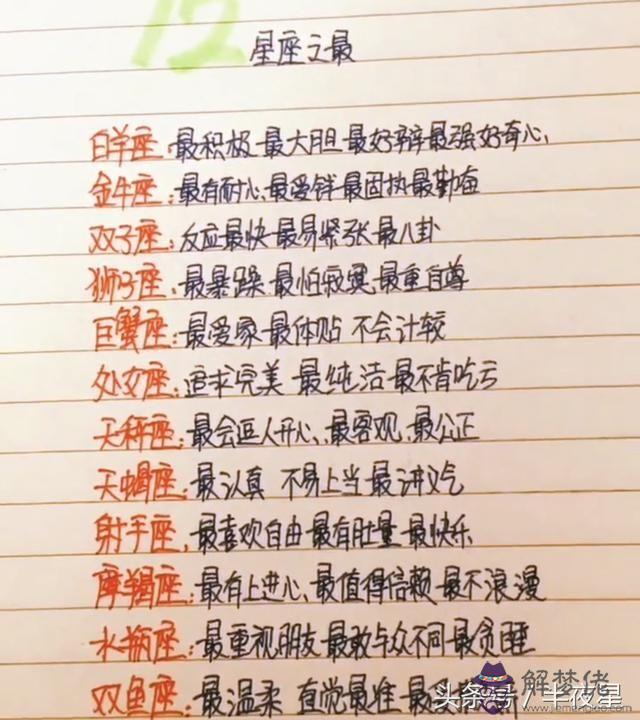 12
星座之最
白羊座:最积极 最大胆 最好辩最强好奇心、
金牛座:最有耐心、最爱钱 最固执最勤奋
双子座:反应最快 最易紧张 最八卦
狮子座:最暴躁、最怕寂寞、最重自尊
巨蟹座:最爱家 最体贴 不会计较
处女座:追求完美 最纯洁 最不肯吃亏
天秤座:最会逗人开心、最客观、最公正
天蝎座:最认真 不易上当 最讲义气
射手座,最喜欢自由 最有肚量 最快乐
摩羯座:最有上进心、最值得信赖 最不浪漫
水瓶座:最重视朋友 最敢与众不同 最贪睡
双鱼座:最温柔 直觉最准 最
解梦佬
头条号/半夜星